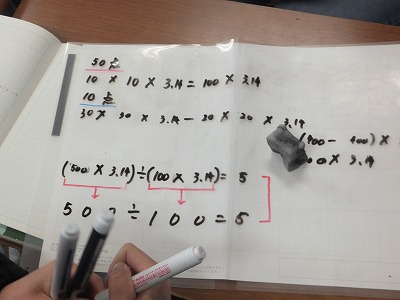 50点
10 × 10 × 3.14 = 100 × 3.14
10点
30 × 30 × 3.14 − 20 × 20 × 3.14
(900 − 400) ×
00 × 3.14
(500 × 3.14) ÷ (100 × 3.14) = 5
500 ÷ 100 = 5